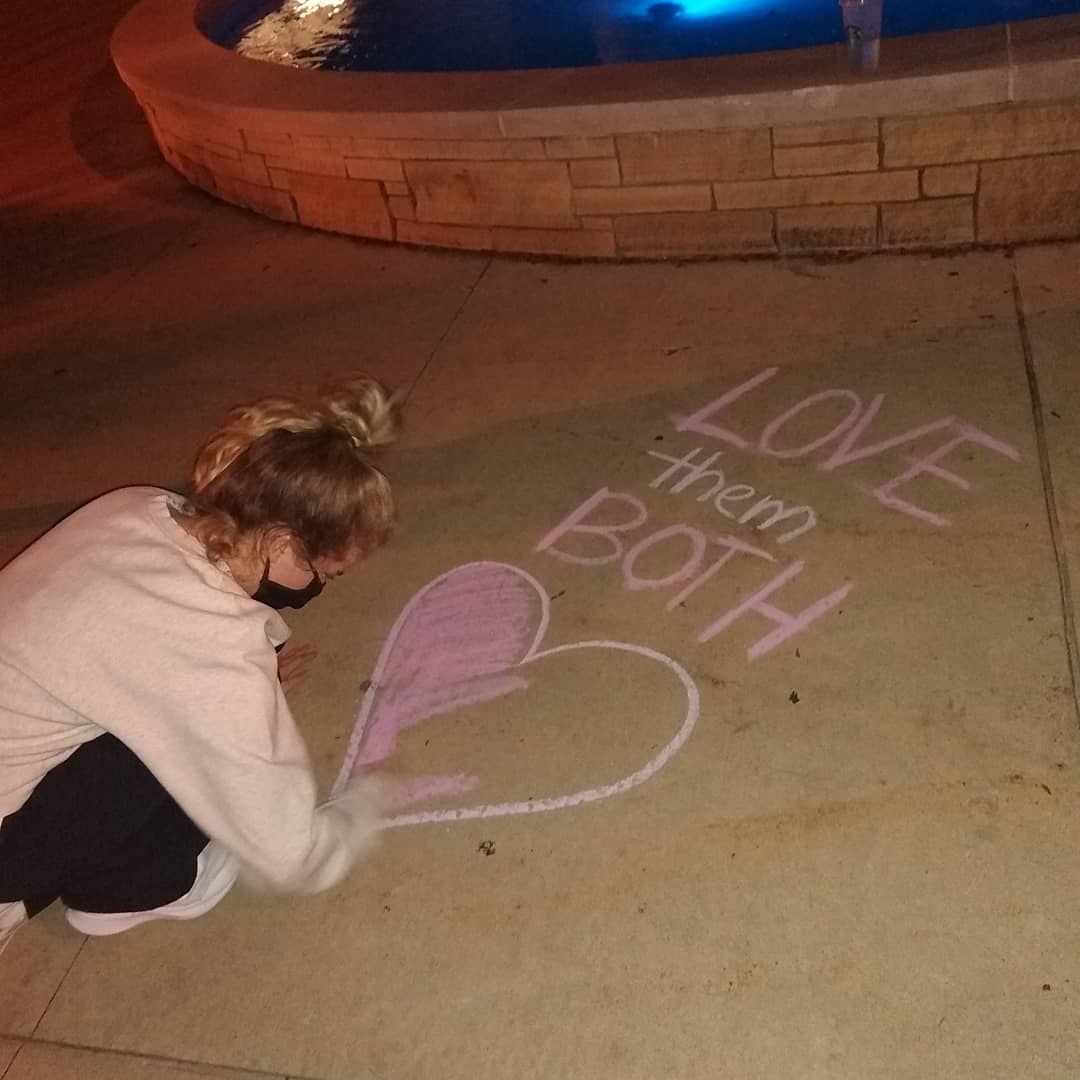 LOVE
them
BOTH